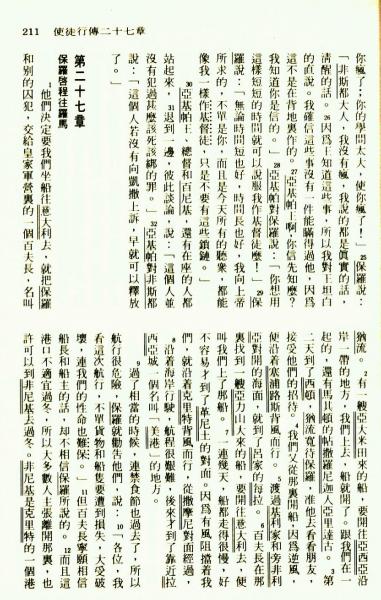 211　使徒行傳二十七章
你瘋了；你的學問太大，使你瘋了！」25保羅說：
「非斯都大人，我沒有瘋，我說的都是眞實的話，
淸醒的話。26因爲王知道這些事，所以我對王坦白
的直說。我確信這些事沒有一件能瞞得過他，因爲
這不是在背地裏作的。27亞基帕王啊，你信先知麼？
我知道你是信的。」28亞基帕對保羅說：「你想用
這樣短短的時間就可以說服我作基督徒麼！」29保
羅說：「無論時間短也好，時間長也好，我向上帝
所求的，不單是你，而且是今天所有的聽衆，都能
像我一樣作基督徒，只是不要有這些鎖鏈。」
30亞基帕王、總督和百尼基，還有在座的人都
站起來，31退到一邊，彼此談論，說：「這個人並
沒有犯過甚麼該死該綁的罪。」32亞基帕對非斯都
說：「這個人若沒有向凱撒上訴，早就可以釋放
了。」
第二十七章
保羅啓程往羅馬
1他們決定要我們坐船往意大利去，就把保羅
和別的囚犯，交給皇家軍營裏的一個百夫長，名叫
猶流。2有一艘亞大米田來的船，要開往亞西亞沿
岸一帶的地方，我們上去，船就開了。跟我們在一
起的，還有馬其頓的帖撒羅尼迦人亞里達古。3第
二天到了西頓，猶流寬待保羅，准他去看看朋友，
接受他們的招待。4我們又從那裏開船，因爲逆風，
便沿着塞浦路斯背風而行。5渡過基利家和旁非利
亞對開的海面，就到了呂家的每拉。6百夫長在那
裏找到一艘亞力山大來的船，要開往意大利去，便
叫我們上了那船。7一連幾天，船都走得很慢，好
不容易才到了革尼土的對面。因爲有風阻擋着我
們，就沿着克里特背風而行，從撒摩尼對面經過，
8沿着海岸行駛，航程很艱難，後來才到了靠近拉
西亞城一個名叫「美港」的地方。
9過了相當的時候，連禁食節也過去了，所以
航行很危險，保羅就勸告他們，說：10「各位，我
看這次航行，不單貨物和船隻要遭到損失，大受破
壞，連我們的性命也難保。」11但百夫長寧願相信
船長和船主的話，却不相信保羅所說的。12而且這
港口不適宜過冬，所以大多數人主張離開那裏，也
許可以到非尼基去過冬。非尼基是克里特的一個港